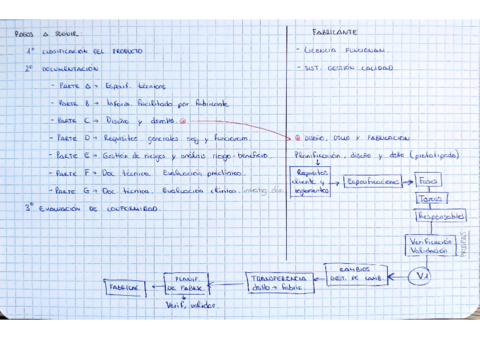 PASOS A SEGUIR:
1º CLASIFICACIÓN DEL PRODUCTO
2º DOCUMENTACIÓN
- PARTE A → Especif. técnicas
- PARTE B → Inform. facilitada por fabricante
- PARTE C → Diseño y dsrllo.
- PARTE D → Requisitos generales seg y funcionam.
- PARTE E → Gestión de riesgos y análisis riesgo-beneficio.
- PARTE F → Doc técnica. Evaluación preclínica.
- PARTE G → Doc técnica. Evaluación clínica.
3º EVALUACIÓN DE CONFORMIDAD.
FABRICANTE
- LICENCIA FUNCIONAM.
- SIST. GESTIÓN CALIDAD
DISEÑO, DSLLO Y FABRICACIÓN
Planificación, diseño y dsllo (prototipado)
Requisitos
cliente y
reglamentos
Especificaciones
Fases
Tareas
Responsables
Verificación
Validación
V.1
CAMBIOS
GEST. DE CAMB.
TRANSFERENCIA
dsllo → fabric.
PLANIF.
DE FABRIC
Verif, validac
FABRICAC.